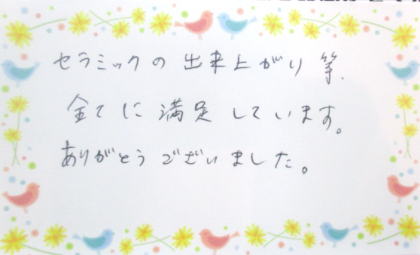 セラミックの出来上がり等、
全てに満足しています。
ありがとうございました。